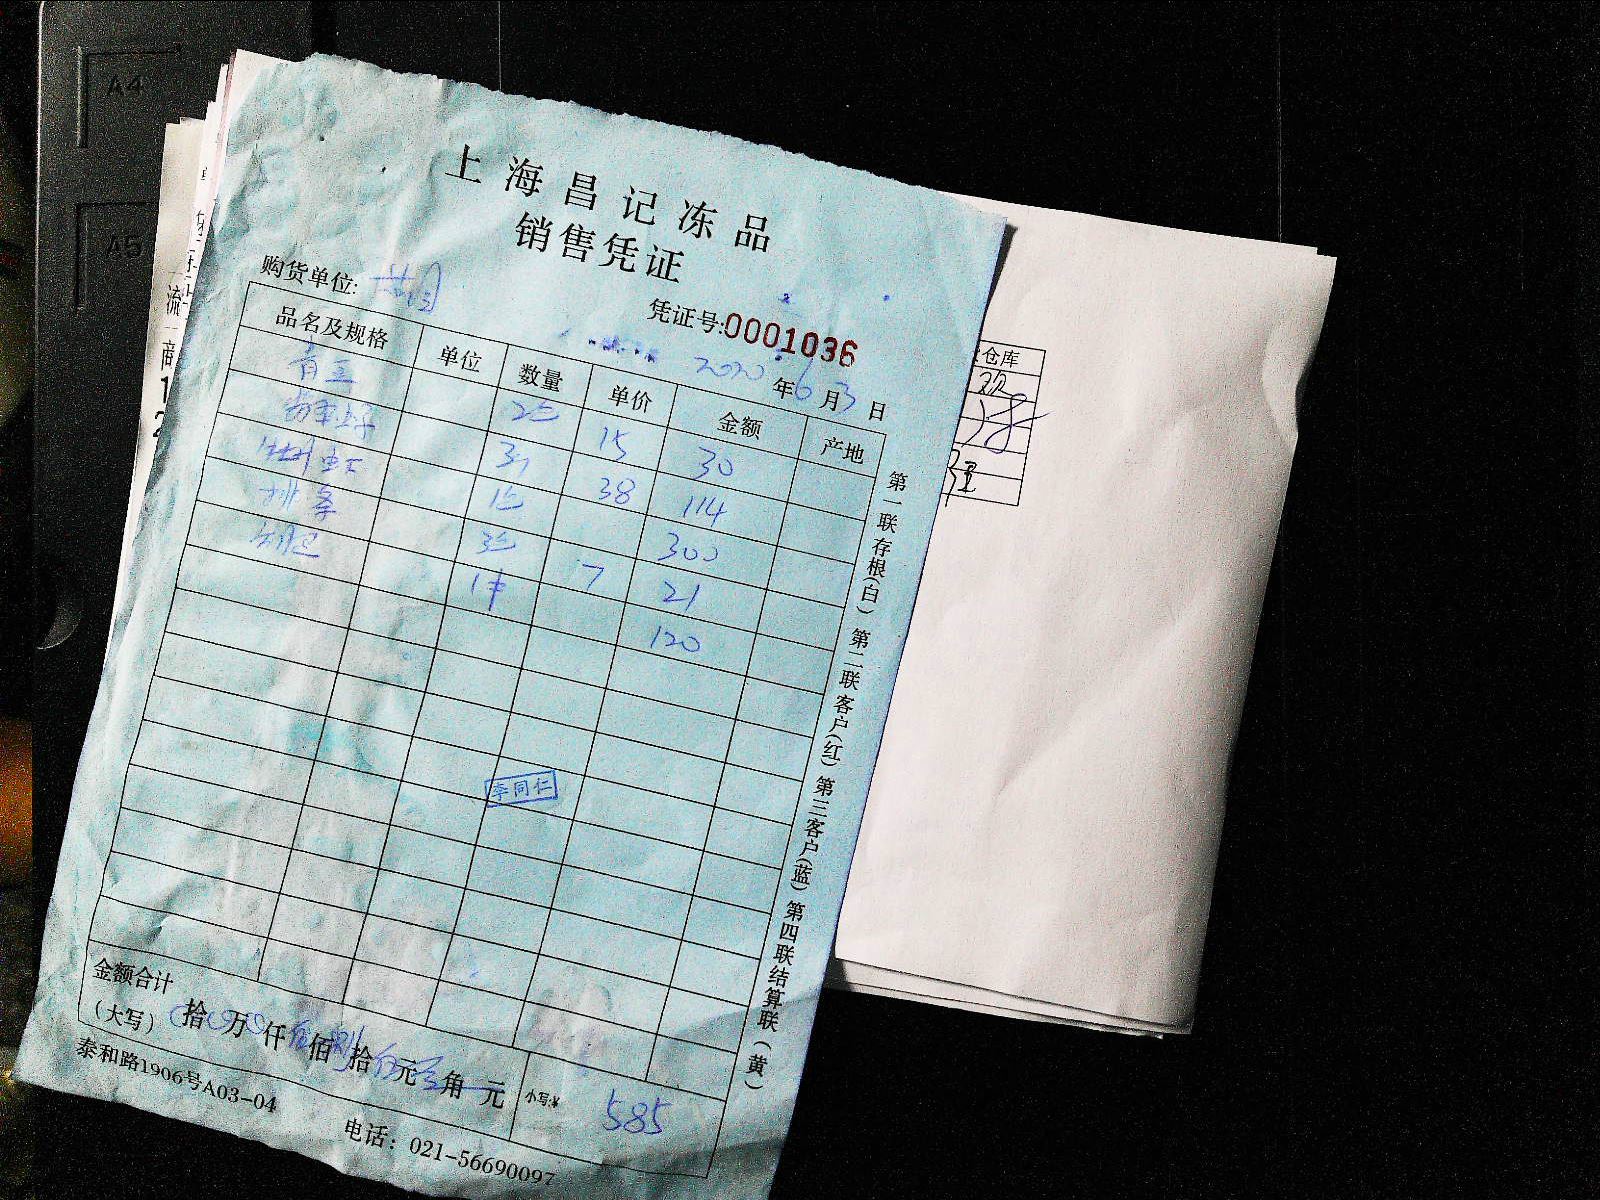 上海昌记冻品
销售凭证
购货单位:
凭证号:0001036
2020年6月3日
品名及规格 单位 数量 单价 金额 产地
青豆 2包 15 30
3 38 114
虾仁 1包 300
排条 3包 7 21
1件 120
李同仁
金额合计
(大写) 拾 万 仟 伍佰捌拾伍元 角 元
小写:¥ 585
泰和路1906号A03-04
电话: 021-56690097
第一联存根(白) 第二联客户(红) 第三客户(蓝) 第四联结算联(黄)
仓库
22
A4
A5
流
商
1
2